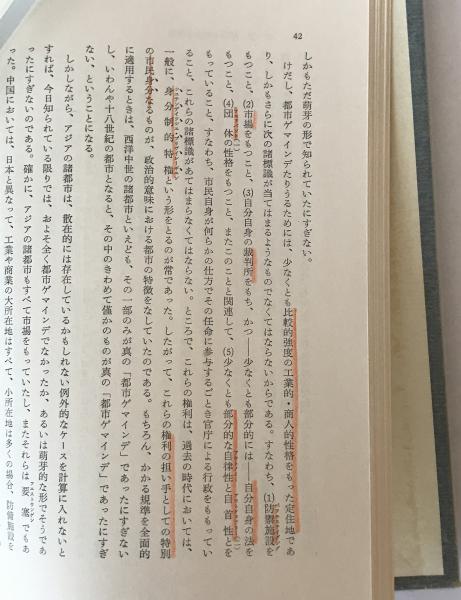 42
しかもただ萌芽の形で知られていたにすぎない。
けだし、都市ゲマインデたりうるためには、少なくとも比較的強度の工業的・商人的性格をもった定住地であ
り、しかもさらに次の諸標識が当てはまるようなものでなくてはならないからである。すなわち、(1)防禦施設を
もつこと、(2)市場をもつこと、(3)自分自身の裁判所をもち、かつ——少なくとも部分的には——自分自身の法を
もつこと、(4)団体の性格をもつこと、またこのことと関連して、(5)少なくとも部分的な自律性と自首性とを
もっていること、すなわち、市民自身が何らかの仕方でその任命に参与するごとき官庁による行政をももってい
ること、これらの諸標識があてはまらなくてはならない。ところで、これらの権利は、過去の時代においては、
一般に、身分制的特権という形をとるのが常であった。したがって、これらの権利の担い手としての特別
の市民身分なるものが、政治的意味における都市の特徴をなしていたのである。もちろん、かかる規準を全面的
に適用するときは、西洋中世の諸都市といえども、その一部のみが真の「都市ゲマインデ」であったにすぎない
し、いわんや十八世紀の都市となると、その中のきわめて僅かのものが真の「都市ゲマインデ」であったにすぎ
ない、ということになる。
しかしながら、アジアの諸都市は、散在的には存在しているかもしれない例外的なケースを計算に入れないと
すれば、今日知られている限りでは、およそ全く都市ゲマインデでなかったか、あるいは萌芽的な形でそうであ
ったにすぎないのである。確かに、アジアの諸都市もすべて市場をもっていたし、またそれらは要塞でもあ
った。中国においては、日本と異なって、工業や商業の大所在地はすべて、小所在地は多くの場合、防備施設を